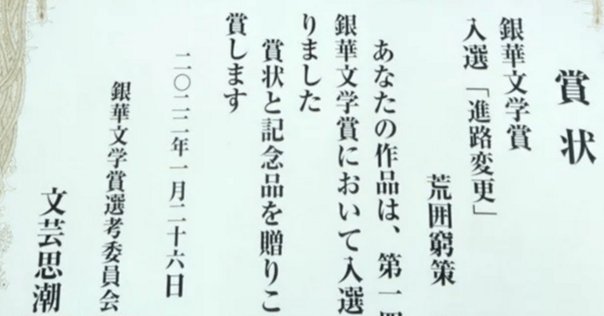 賞状
銀華文学賞
入選「進路変更」
荒囲窮策
あなたの作品は、第一
銀華文学賞において入選
りました
賞状と記念品を贈りこ
賞します
二〇二二年一月二十六日
銀華文学賞選考委員会
文芸思潮